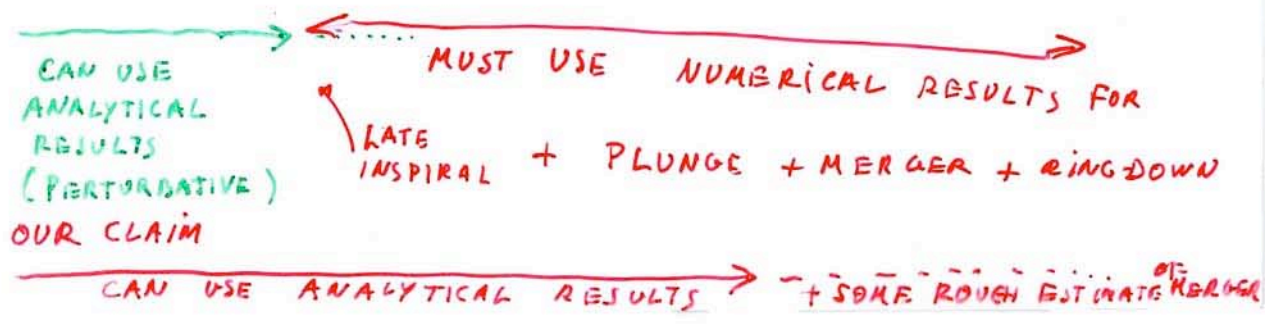 CAN USE
ANALYTICAL
RESULTS
(PERTURBATIVE)
MUST USE NUMERICAL RESULTS FOR
LATE
INSPIRAL + PLUNGE + MERGER + RINGDOWN
OUR CLAIM
CAN USE ANALYTICAL RESULTS + SOME ROUGH ESTIMATE OF MERGER